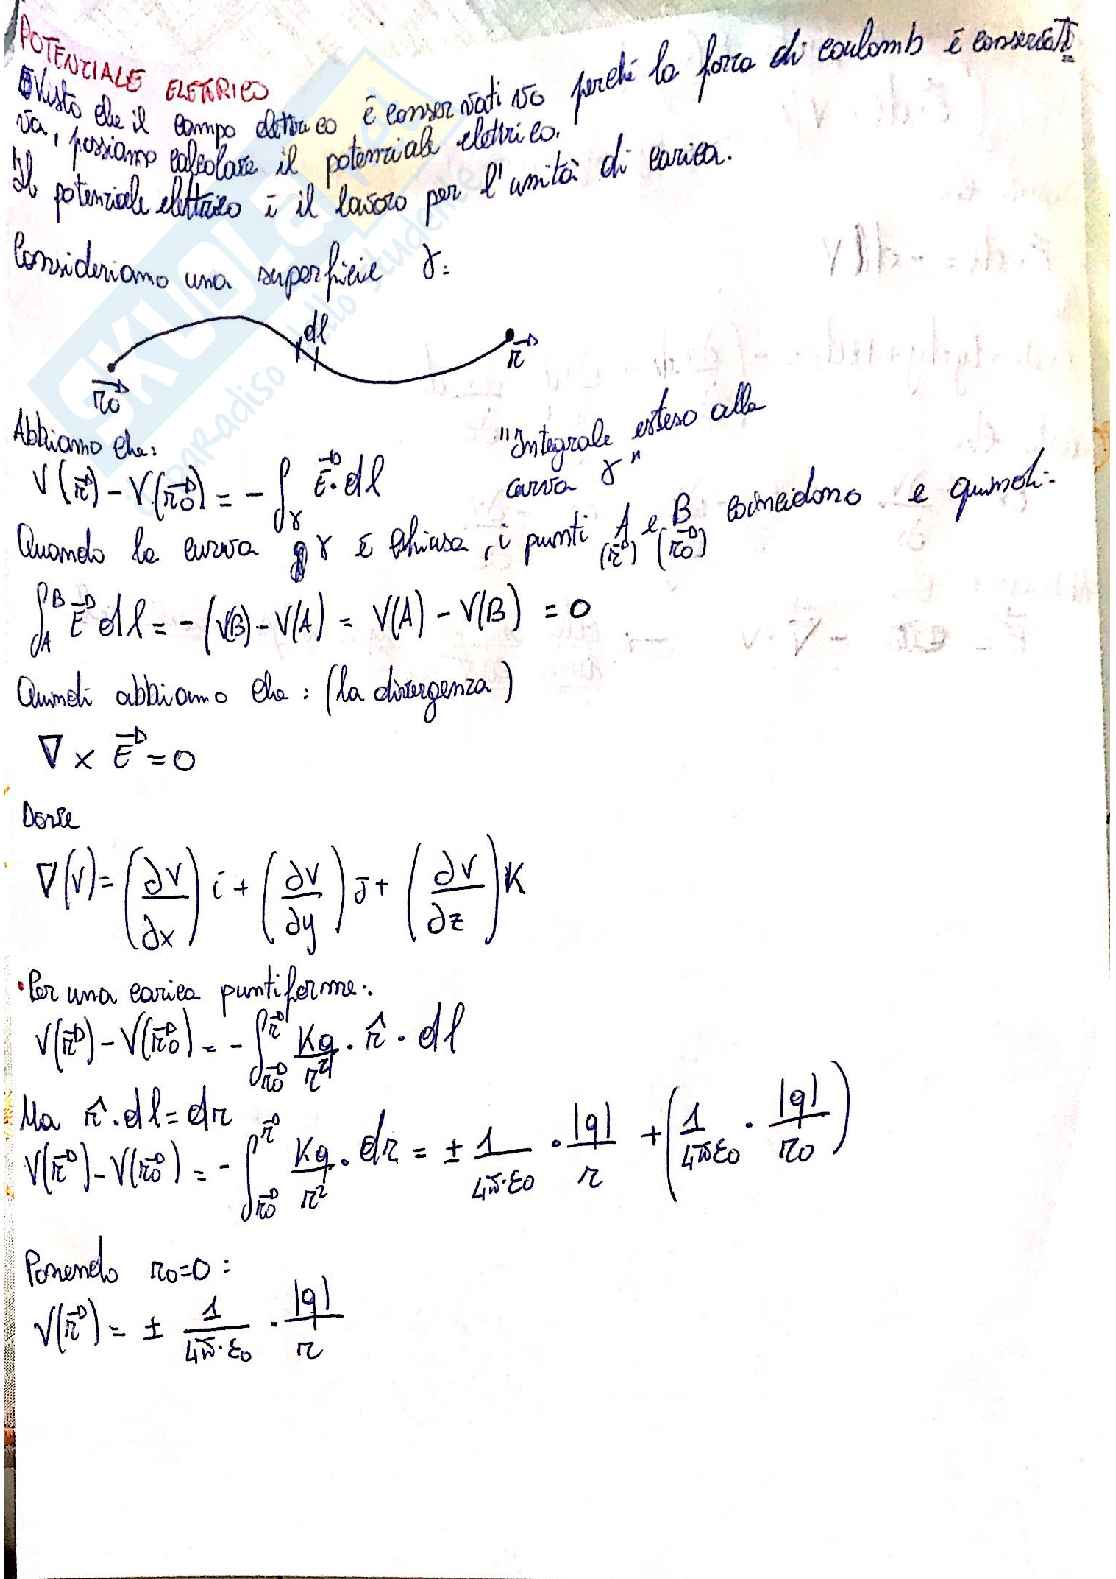 POTENZIALE ELETTRICO
Visto che il campo elettrico è conservativo perché la forza di coulomb è conservati
va, possiamo calcolare il potenziale elettrico.
Il potenziale elettrico è il lavoro per l'unità di carica.
Consideriamo una superficie γ:
dl
r⃗0 r⃗
Abbiamo che:
V(r⃗) - V(r⃗0) = - ∫γ E⃗ · dl
"Integrale esteso alla
curva γ"
Quando la curva γ è chiusa, i punti A e B coincidono e quindi:
(r⃗) (r⃗0)
∫A^B E⃗ dl = - (V(B) - V(A) = V(A) - V(B) = 0
Quindi abbiamo che: (la divergenza)
∇ × E⃗ = 0
Dove
∇(V) = (∂V/∂x) i + (∂V/∂y) J + (∂V/∂z) K
• Per una carica puntiforme:
V(r⃗) - V(r⃗0) = - ∫r⃗0^r⃗ Kq/r² · r̂ · dl
Ma r̂ · dl = dr
V(r⃗) - V(r⃗0) = - ∫r⃗0^r⃗ Kq/r² · dr = ± 1/4π·ε0 · |q|/r + (1/4πε0 · |q|/r0)
Ponendo r0=0:
V(r⃗) = ± 1/4π·ε0 · |q|/r
SKUOLA.net
paradiso dello studente